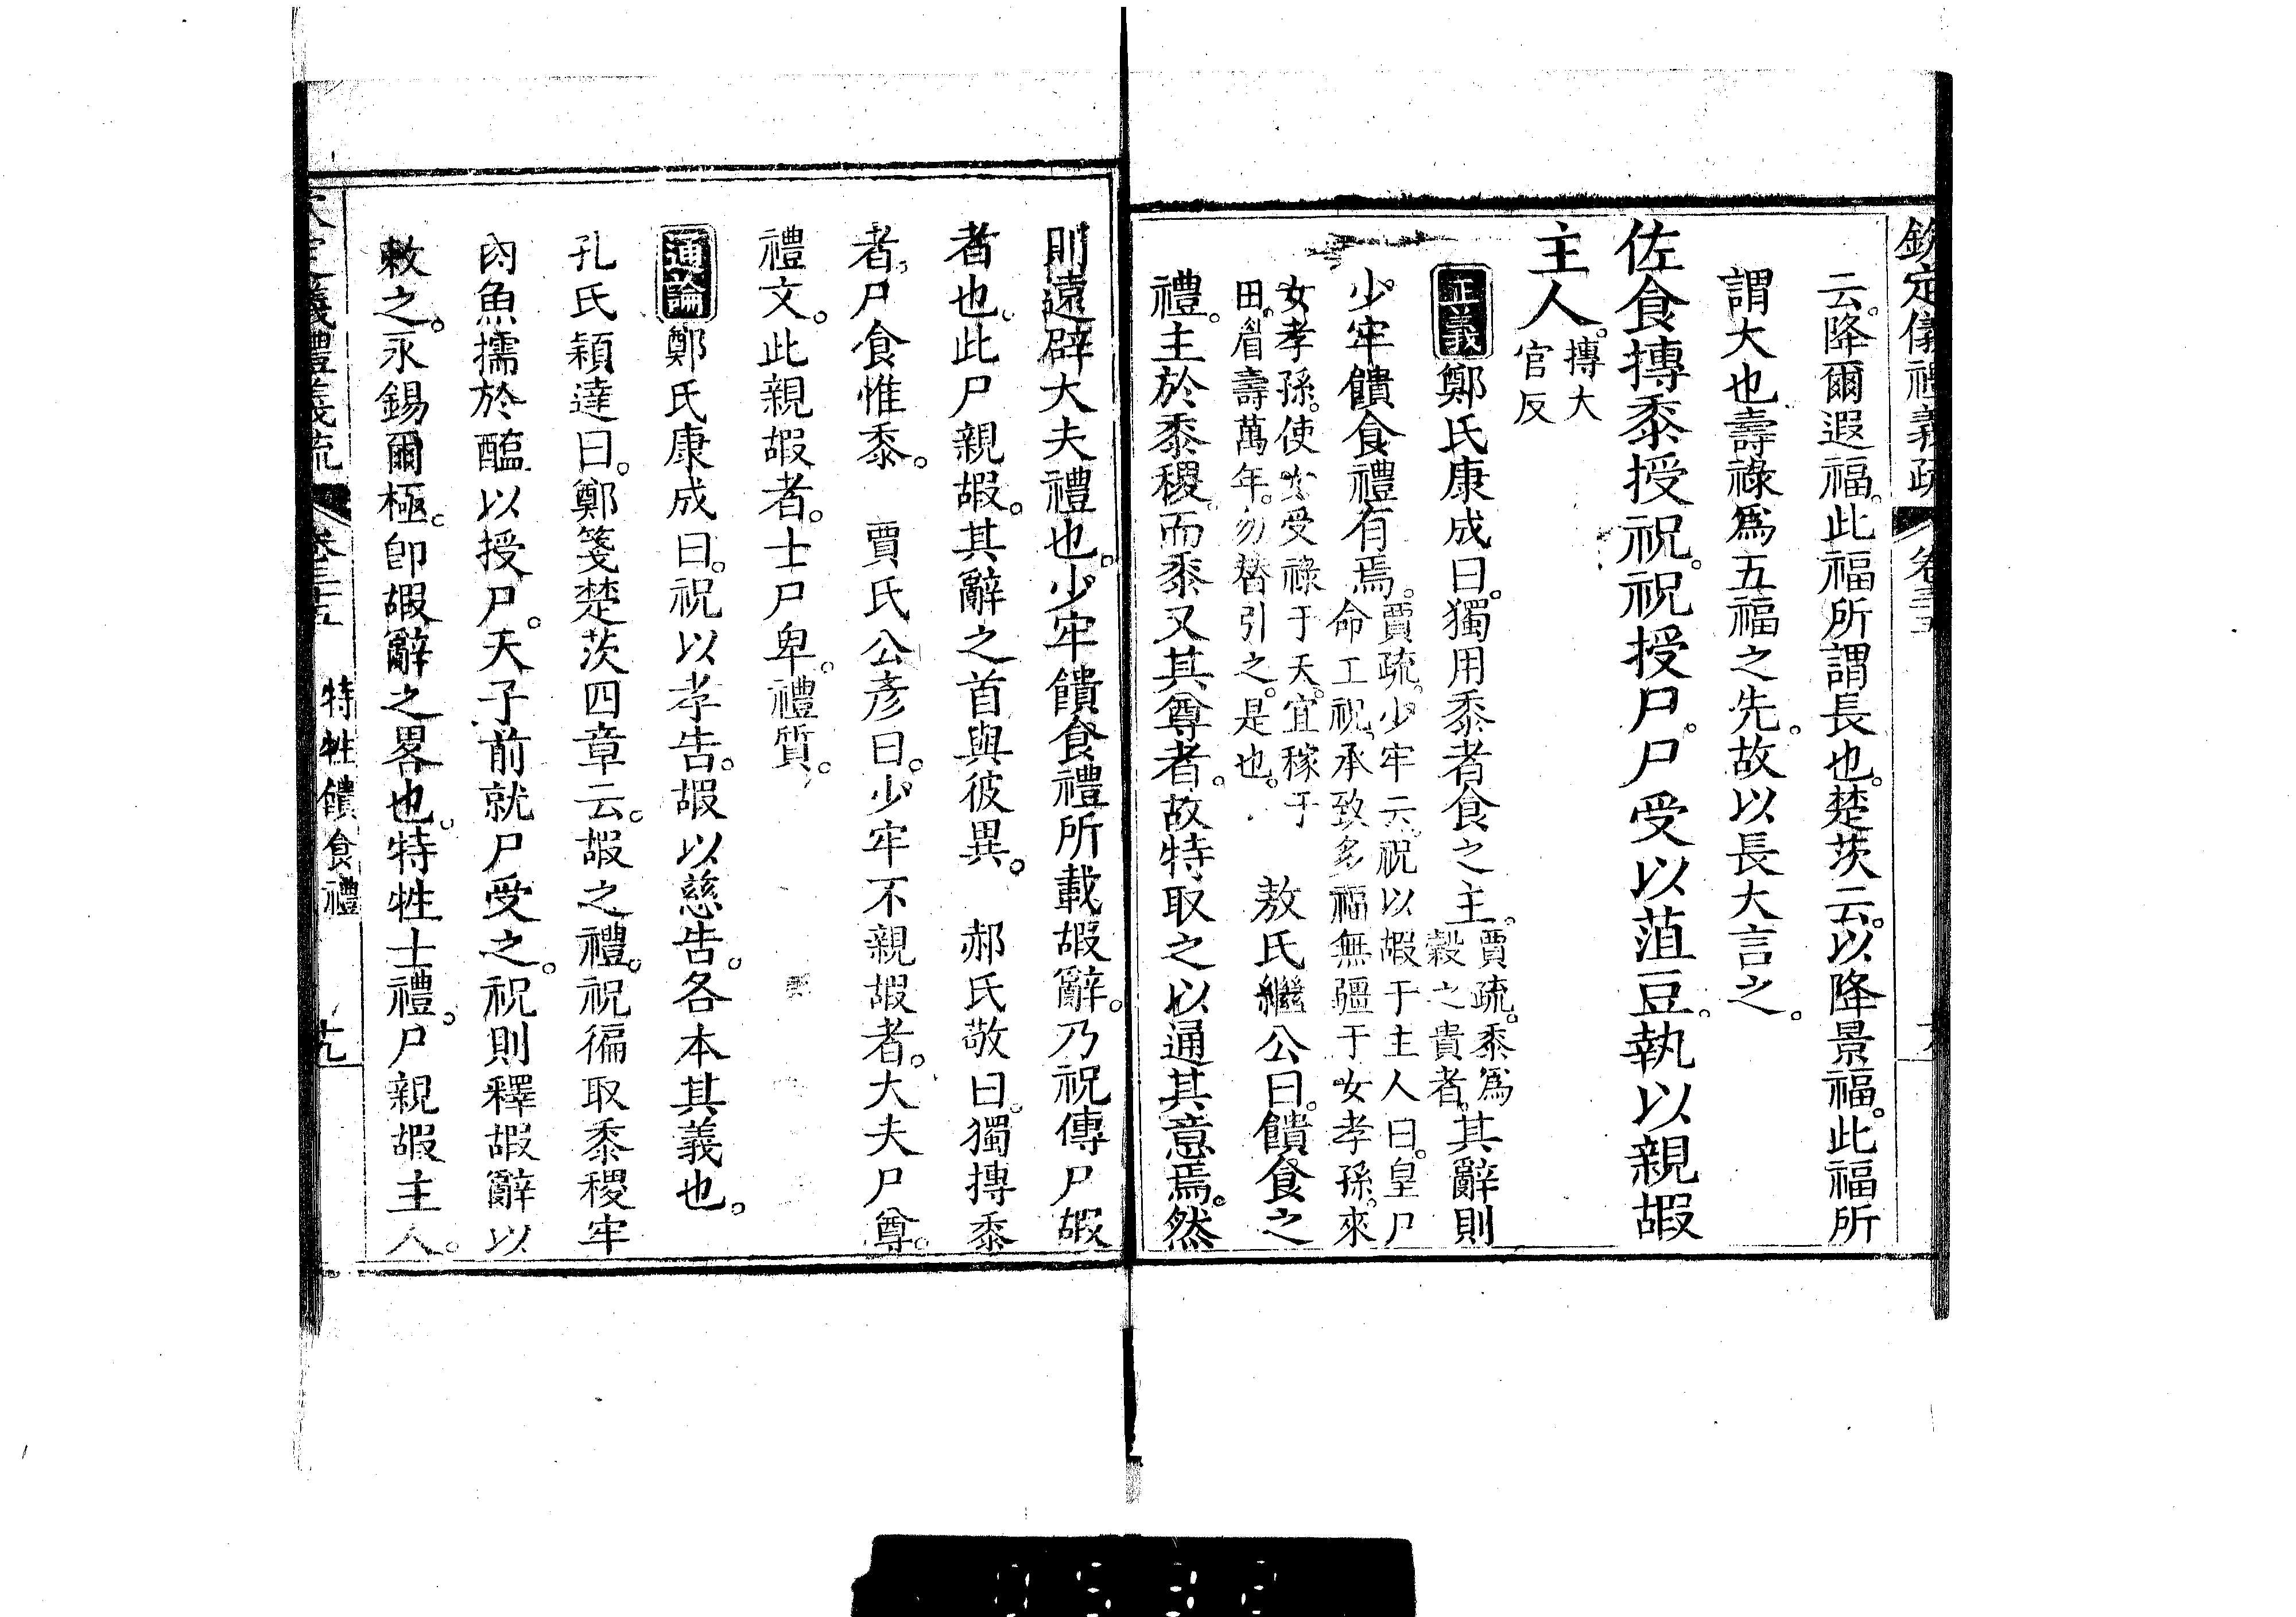 欽定儀禮義疏 卷三十五
云。降爾遐福。此福所謂長也。楚茨云。以降景福。此福所
謂大也。壽祿為五福之先。故以長大言之。
佐食摶黍授祝。祝授尸。尸受以菹豆。執以親嘏
主人。摶大官反
正義鄭氏康成曰。獨用黍者。食之主。賈疏。黍為穀之貴者。其辭則
少牢饋食禮有焉。賈疏。少牢云。祝以嘏于主人曰。皇尸命工祝。承致多福無疆于女孝孫。來
女孝孫。使女受祿于天。宜稼于田。眉壽萬年。勿替引之。是也。 敖氏繼公曰。饋食之
禮。主於黍稷。而黍又其尊者。故特取之以通其意焉。然
則遠辟大夫禮也。少牢饋食禮所載嘏辭。乃祝傳尸嘏
者也。此尸親嘏。其辭之首與彼異。 郝氏敬曰。獨摶黍
者。尸食惟黍。 賈氏公彥曰。少牢不親嘏者。大夫尸尊。
禮文。此親嘏者。士尸卑。禮質。
通論鄭氏康成曰。祝以孝告。嘏以慈告。各本其義也。
孔氏穎達曰。鄭箋楚茨四章云。嘏之禮。祝徧取黍稷牢
肉魚擩於醢以授尸。天子前就尸受之。祝則釋嘏辭以
敕之。永錫爾極。卽嘏辭之畧也。特牲士禮。尸親嘏主人。
欽定儀禮義疏 卷三十五 特牲饋食禮 十九